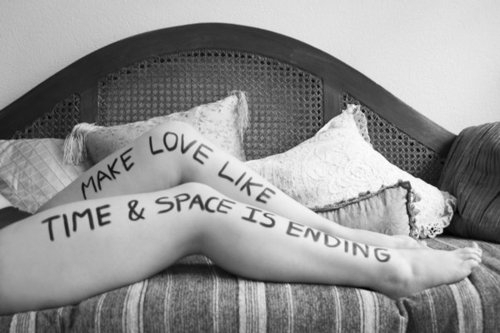 MAKE LOVE LIKE
TIME & SPACE IS ENDING